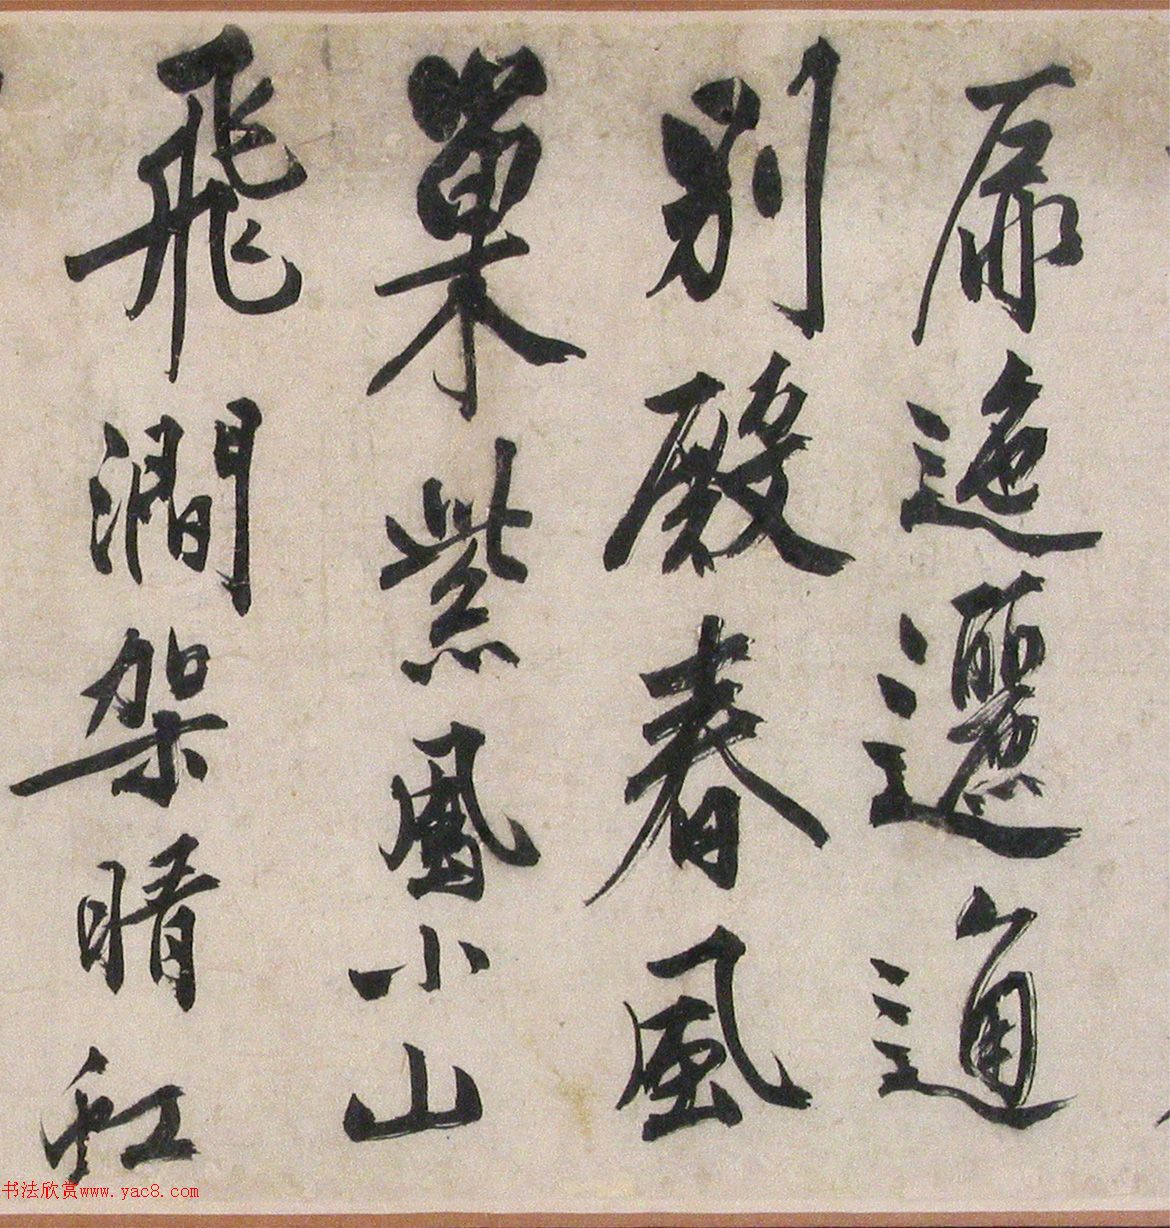 扉迤邐通
別殿春風
巢紫鳳小山
飛澗架晴虹
书法欣赏www.yac8.com